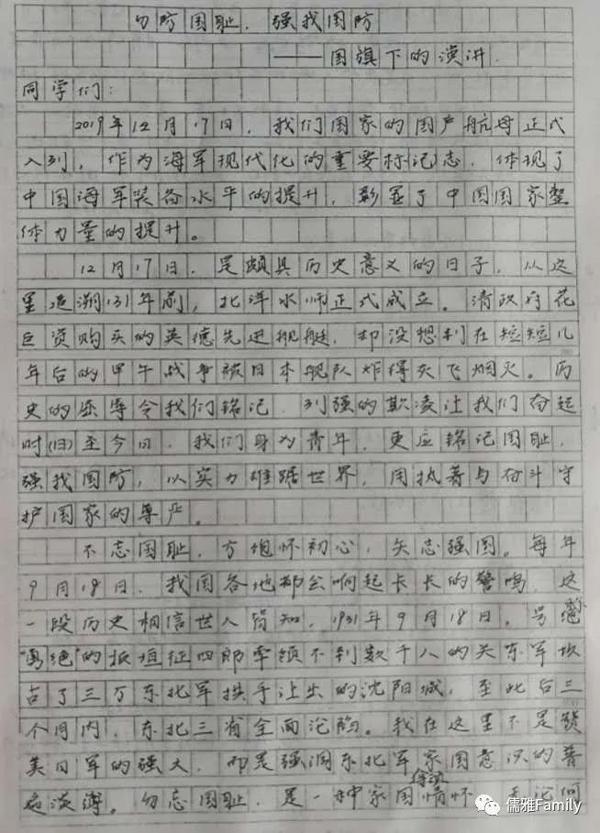 勿防国耻，强我国防
——国旗下的演讲
同学们：
2019年12月17日，我们国家的国产航母正式
入列，作为海军现代化的重要标记志，体现了
中国海军装备水平的提升，彰显了中国国家整
体力量的提升。
12月17日，是颇具历史意义的日子，从这
里追溯131年前，北洋水师正式成立。清政府花
巨资购买的英德先进舰艇，却没想到在短短几
年后的甲午战争被日本舰队炸得灰飞烟灭。历
史的屈辱令我们铭记，列强的欺凌让我们奋起
时(旧)至今日，我们身为青年，更应铭记国耻，
强我国防，以实力雄踞世界，用执着与奋斗守
护国家的尊严。
不忘国耻，方抱怀初心，矢志强国。每年
9月18日，我国各地都会响起长长的警鸣，这
一段历史相信世人皆知，1931年9月18日，号称
"勇绝"的板垣征四郎率领不到数千人的关东军攻
占了三万东北军拱手让出的沈阳城，至此后三
个月内，东北三省全面沦陷。我在这里不是赞
美日军的强大，而是强调东北军家国意识的普
遍淡薄。勿忘国耻，是一种家国情怀，无论何
儒雅Family